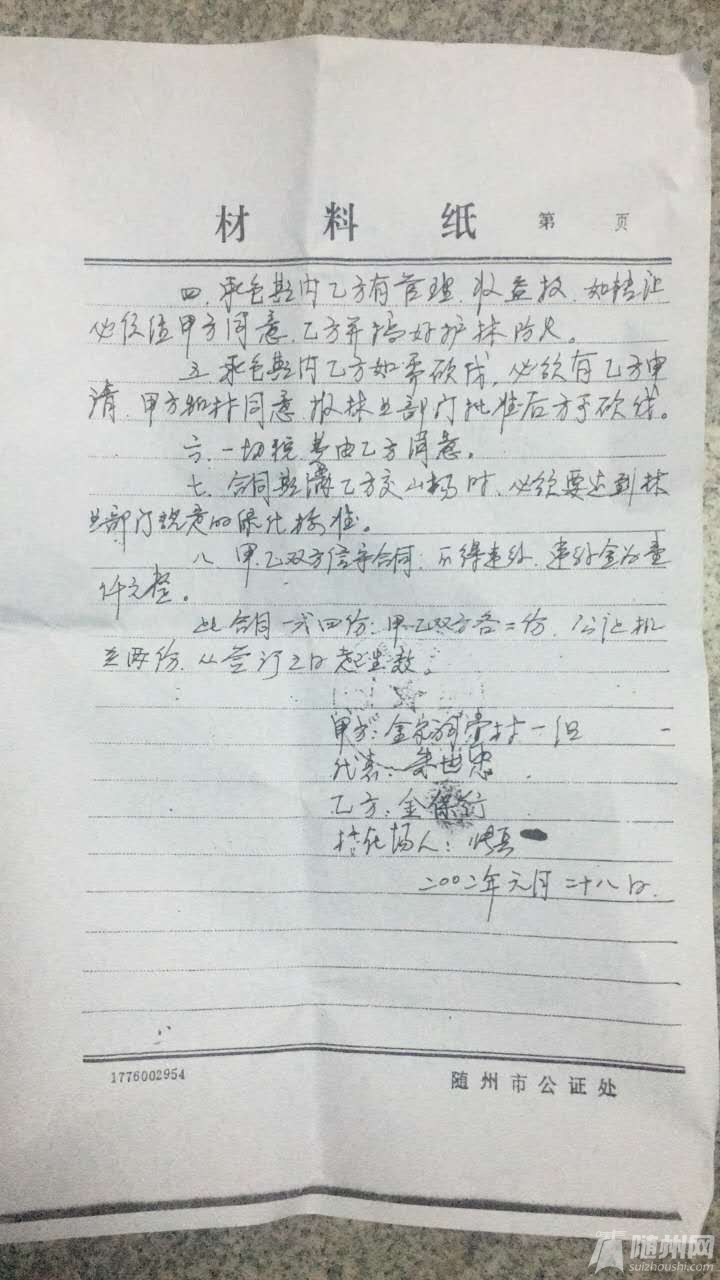 材 料 纸 第 页
四、承包期内乙方有管理、收益权,如转让
必须经甲方同意,乙方并搞好护林防火。
五、承包期内乙方如需砍伐,必须有乙方申
请,甲方和村同意,报林业部门批准后方可砍伐。
六、一切税费由乙方
七、合同期满乙方交山场时,必须要达到林
业部门规定的绿化标准。
八、甲、乙双方信守合同,不得违约,违约金为壹
仟元整。
此合同一式四份,甲乙双方各二份,公证机
关两份,从签订之日起生效。
甲方:金 村一组
代表: 世忠
乙方:金保
人:
二00二年元月二十八日
1776002954
随州市公证处
随州网
suizhoushi.com